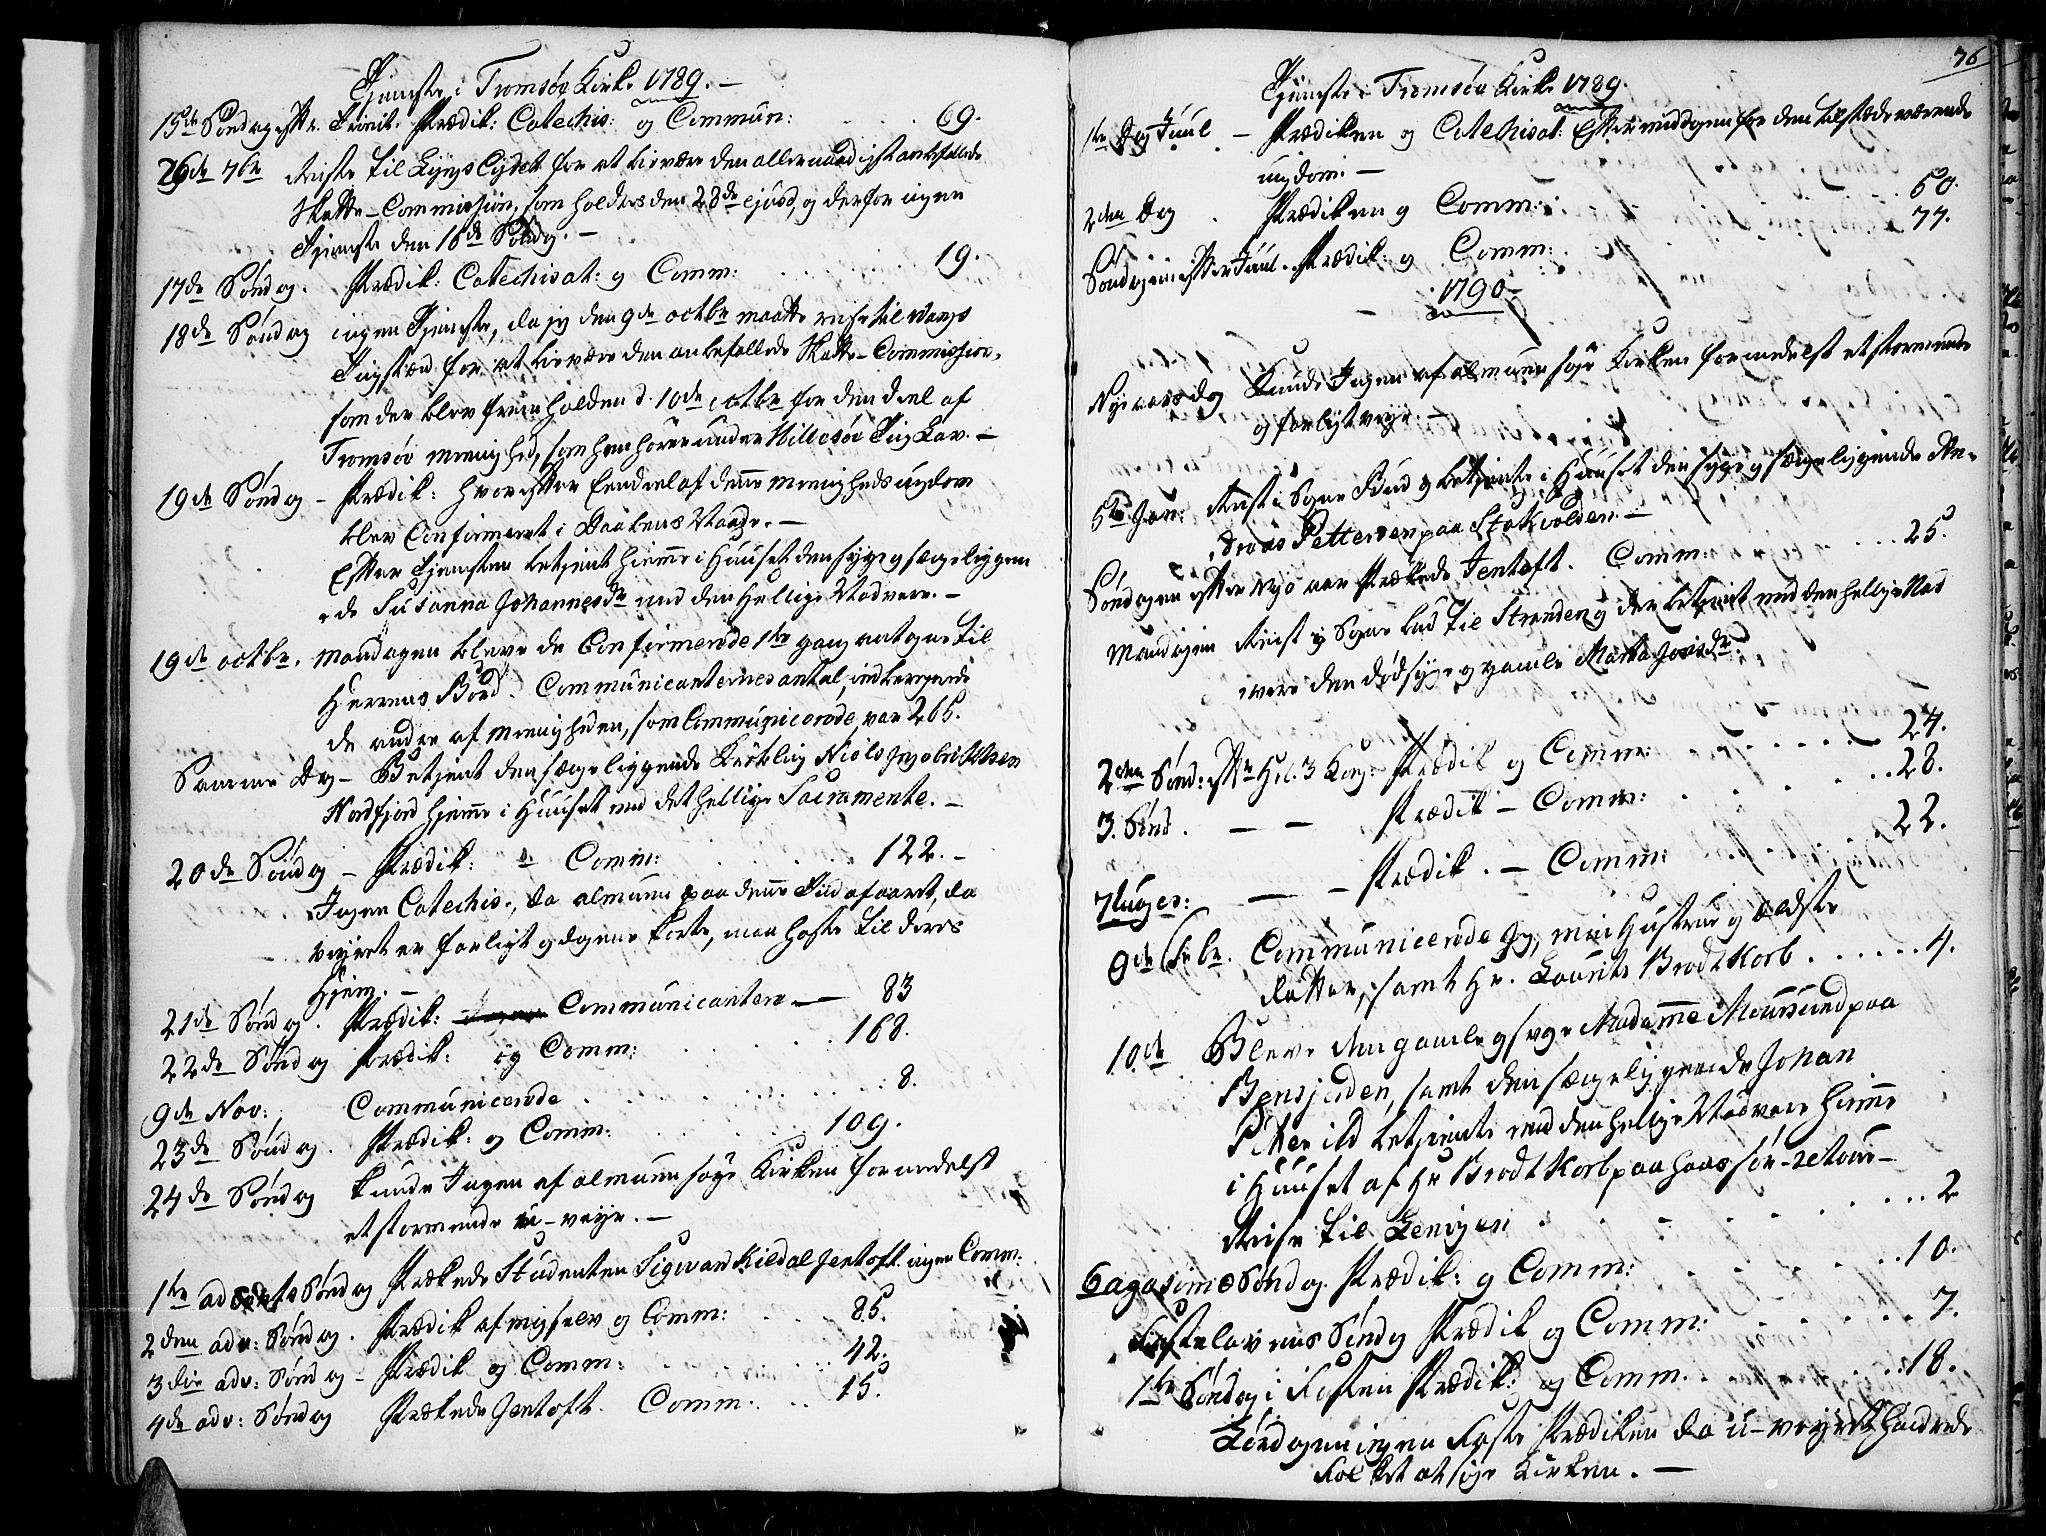 Tjeneste i Tromsøe Kirke 1789. –
15de Søndag efter Trinit: Prædik: Catechis: og Commun: . . . 69.
26de 7br Reiste til Lyngs Eydet for at bievære den allernaadigst anbefallede
Skatte-Commission, som holdtes den 28de ejusd, og derfor ingen
Tjeneste den 16de Søndag. –
17de Søndag. Prædik: Catechisat: og Comm: . . . 19.
18de Søndag ingen Tjeneste, da jeg den 9de octbr maatte reise til
Tingsted for at bievære den anbefallede Skatte-Commission,
som der blev fremholden d. 10de octbr for den Deel af
Tromsøe menighed, som henhører under Hillesøe Ting Lav. –
19de Søndag – Prædik: hvorefter Eendeel af denne menigheds ungdom
blev Confirmeret i Daabens Naade. –
Efter Tjenesten betjent hiemme i Huuset den syge og sængeliggen-
de Susanna Johannesdr med den Hellige Nadvere. –
19de octbr. mandagen bleve de Confirmerede 1te gang antagne til
Herrens Bord. Communicanternes antal, indberegnede
de andre af menigheden, som Communicerede, var 265.
Samme Dag – Betjent den sængeliggende Niels Ingebrichtsen
Nordfjord hjemme i Huuset med det hellige Sacramente. –
20de Søndag – Prædik: & Comm: . . . 122. –
Ingen Catechis., da almuen paa denne Tiid af aaret, da
vejret er farligt og dagene korte, maa haste til deres
Hjem. –
21de Søndag. Prædik: Communicantere – 83
22de Søndag Prædik: og Comm: . . . 168.
9de Nov: Communicerede . . . 8.
23de Søndag. Prædik: og Comm: . . . 109.
24de Søndag kunde Ingen af almuen søge Kirken formedelst
et stormende u-vejr. –
1te advents Søndag Prækede Studenten Sigvard Kildal Jentoft. ingen Comm:
2den adv: Søndag. Prædik af mig selv og Comm: . . . 85.
3die adv: Søndag – Prædik og Comm: . . . 42.
4de adv: Søndag Prækede Jentoft. Comm: . . . 15.
76
Tjeneste i Tromsøe Kirke 1789.
1te Dag Juul – Prædiken og Catechisat: Eftermiddagen for den tilstædeværende
ungdom. –
2den Dag . Prædiken og Comm: . . . 50.
Søndagen efter Juul. Prædik: og Comm: . . . 77.
1790
Nyeaarsdag Kunde Ingen af almuen søge Kirken formedelst et stormende
og farligt vejr. –
5te Jan: Reist i Sogne Bud og betjente i Huuset den syge og sængeliggende An-
dreas Pettersen paa Stakvolden. –
Søndagen efter Nye aar Prækede Jentoft. Comm: . . . 25.
Mandagen Reist i Sogne bud til Stranden og der betjent med den hellige Nad
were den dødsyge og gamle Marta Joensdr.
2den Sønd: eftr Hel. 3 Kong: Prædik og Comm: . . . 24.
3. Sønd. – – Prædik – Comm: . . . 28.
7tuages: – – Prædik. – Comm: . . . 22.
9de Febr. Communicerede Jeg, min Hustrue og ældste
datter, samt Hr. Laurits BrodtKorb . . . 4.
10de Bleve den gamle og syge Madamme Moursund paa
Bensjorden, samt den sængeliggende Johan
betjente med den hellige Nadvere hiemme
i Huuset af Hr BrodtKorb paa hans sør-retour-
Reise til Lenvigen . . . 2
6agesimæ Søndag. Prædik: og Comm: . . . 10.
Fastelavens Søndag Prædik og Comm: . . . 7.
1te Søndag i Fasten Prædik: og Comm. . . . 18.
Lørdagen ingen Faste Prædiken da u-vejret hindrede
Folket at søge Kirken. –